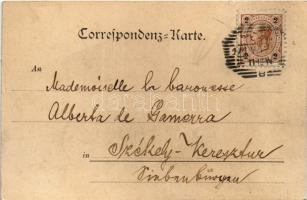 Correspondenz-Karte.
An
Mademoiselle la baronesse
Alberta de Gamerra
in Székely-Keresztur
Siebenbürgen